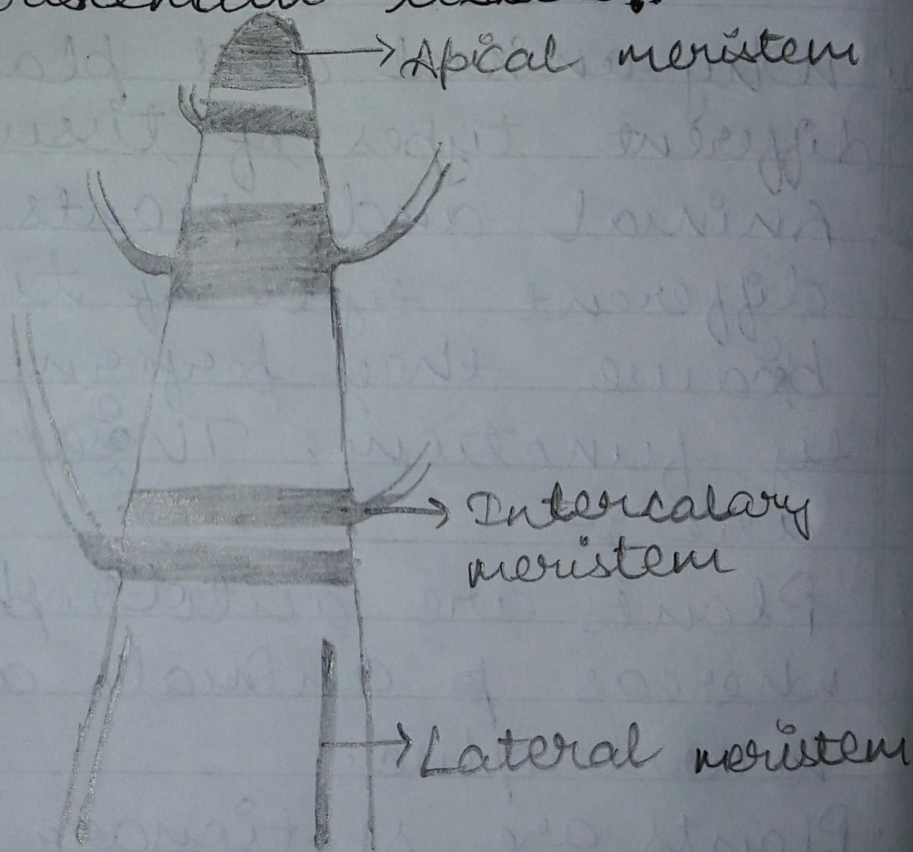 Apical meristem
Intercalary
meristem
Lateral meristem